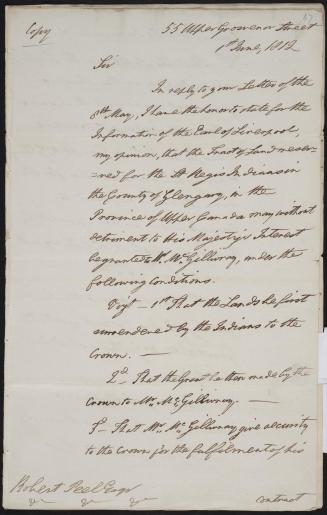 Copy
55 Upper Grosvenor Street
1st June, 1812
Sir
In reply to your Letter of the
8th May, I have the honor to state for the
Information of the Earl of Liverpool,
my opinion, that the Tract of Land reser-
=ved for the St Regis Indians in
the County of Glengary, in the
Province of Upper Canada may without
detriment to His Majesty's Interest
be granted to Mr. McGillivray, under the
following Conditions.
Vizt 1st That the Lands be first
surrendered by the Indians to the
Crown. —
2d — That the Grant be then made by the
Crown to Mr. McGillivray. —
3d — That Mr. McGillivray give security
to the Crown for the fulfilment of his
Robert Peel Esqr
contract